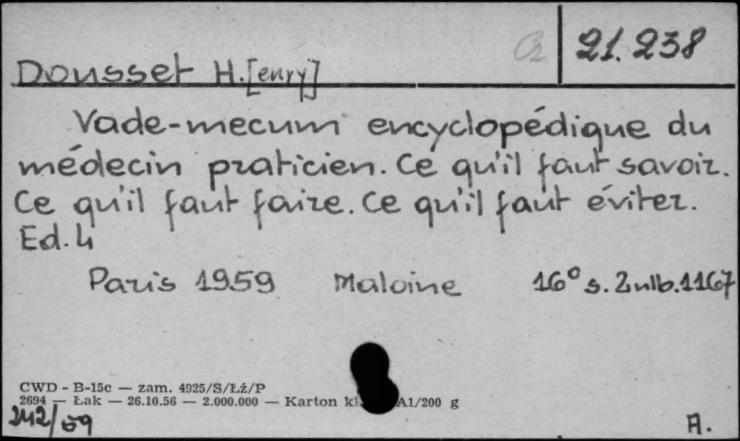 Cz 21.238
Dousset H.[enry]
Vade-mecum encyclopédique du
médecin praticien. Ce qu'il faut savoir.
Ce qu'il faut faire. Ce qu'il faut éviter.
Ed. 4
Paris 1959 Maloine 16° s. 2nlb. 1167
CWD - B-15c — zam. 4925/S/Łż/P
2694 — Łak — 26.10.56 — 2.000.000 — Karton A1/200 g
242/59 A.